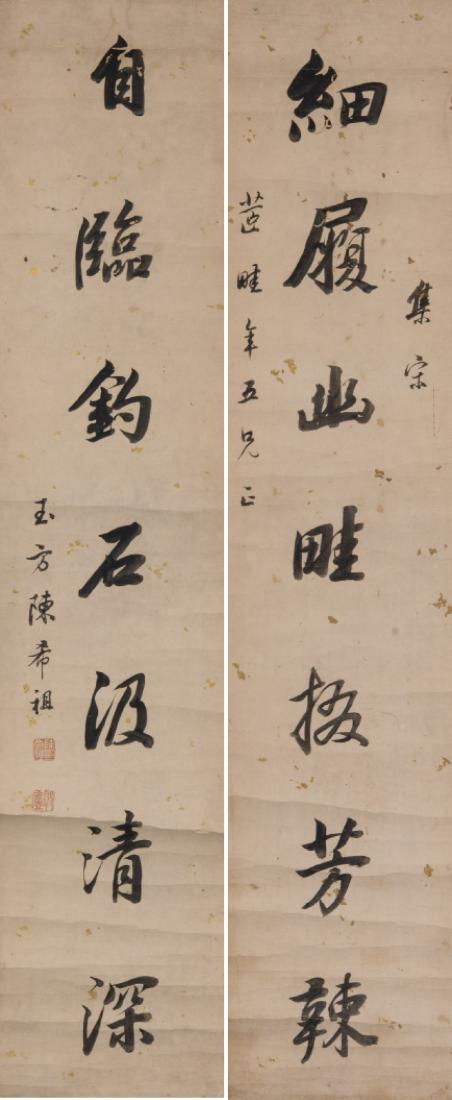 集宋
細履幽畦掇芳辣
茝畦年五兄正
自臨釣石汲清深
玉方陳希祖